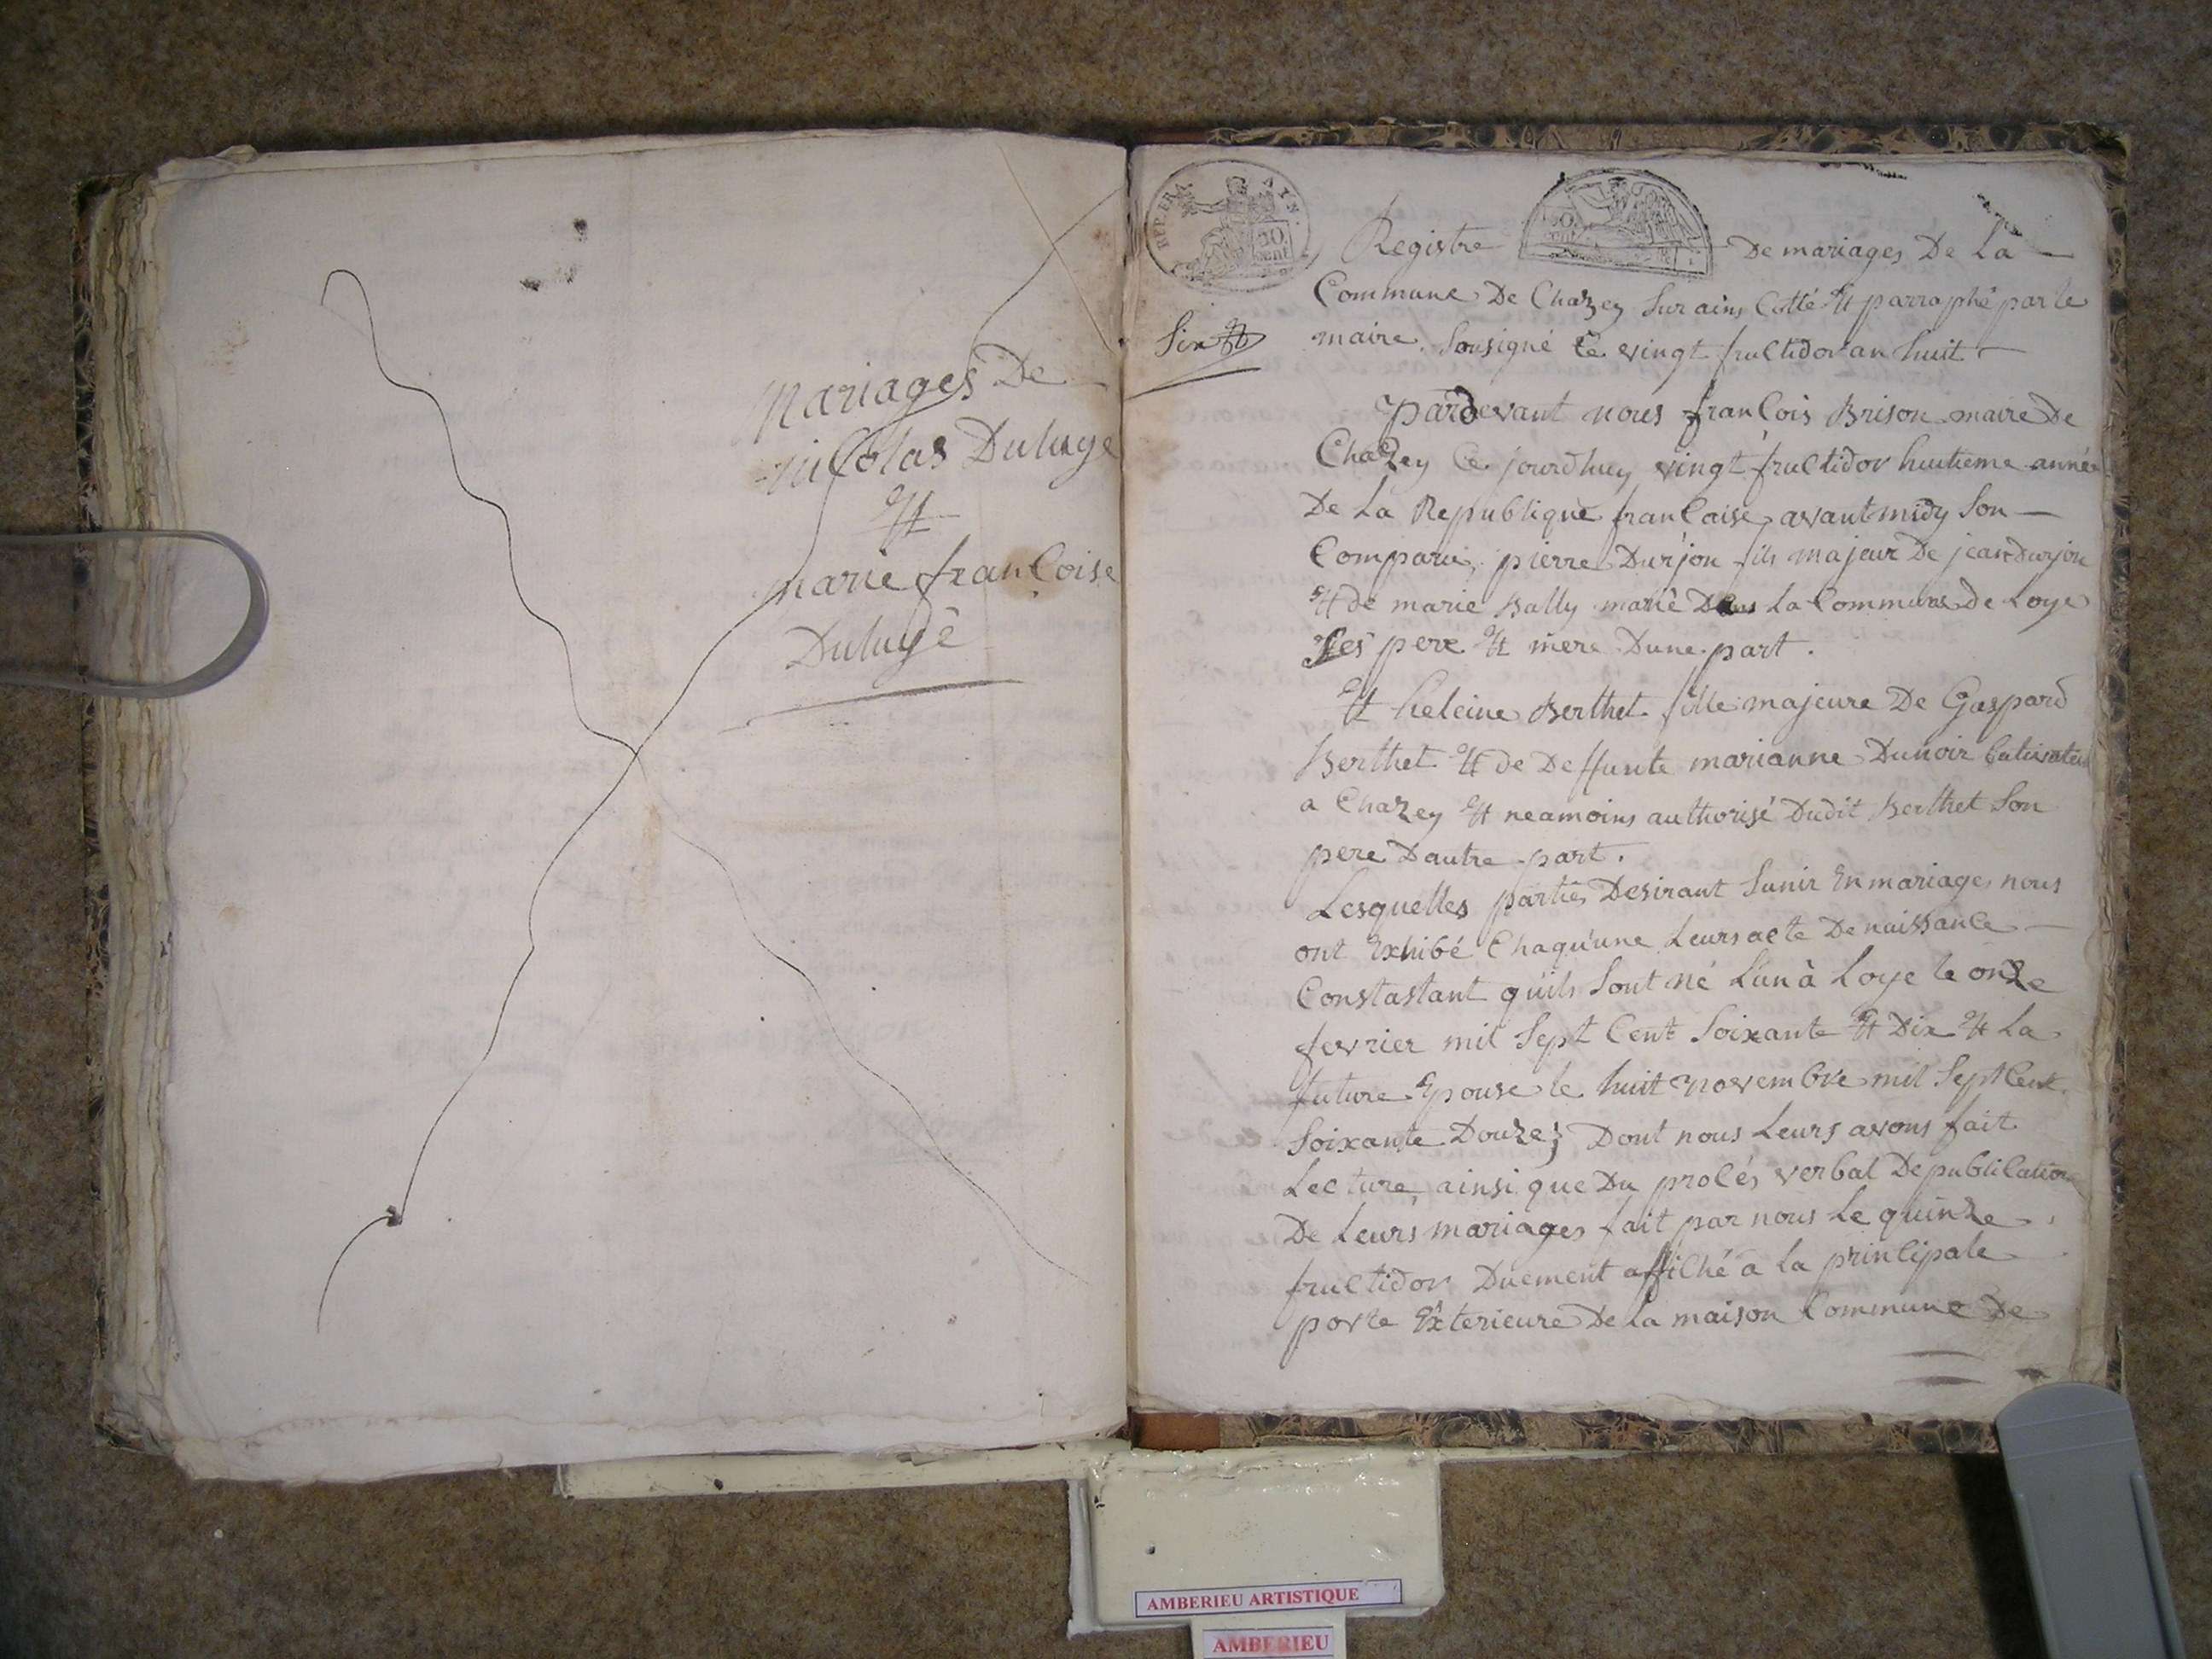 Mariages De
nicolas Duluge
Et
marie francoise
Duluge
REP. FRA
AYS.
20.
cent
50.
cent
Registre De mariages De La
Commune De Chazey Sur ains Cotté Et parraphé par le
maire Sousigné Ce vingt fructidor an huit
Six
pardevant nous francois Brison maire De
Chazey Ce jourdhuy vingt fructidor huitieme année
De La Republique francaise, avant midy Son
Comparu, pierre Durjon fils majeur De jean Durjon
Et de marie Bally marié Dans La Commune de Loye
Ses pere Et mere Dune part.
Et heleine Berthet fille majeure De Gaspard
Berthet Et de Deffunte marianne Dunoir Cultivateur
a Chazey Et neamoins authorisé Dudit Berthet Son
pere Dautre part.
Lesquelles parties Desirant Sunir En mariage, nous
ont Exhibé Chaqu'une Leurs acte De naissance
Constastant quils Sont né L'un à Loye le onze
fevrier mil Sept Cent Soixante Et Dix Et La
future Epouse le huit novembre mil Sept Cent
Soixante Douze; Dont nous Leurs avons fait
Lecture, ainsi que Du procés verbal De publication
De Leurs mariages fait par nous Le quinze
fructidor Duement affiché a La principale
porte Exterieure De La maison Commune De
AMBERIEU ARTISTIQUE
AMBERIEU